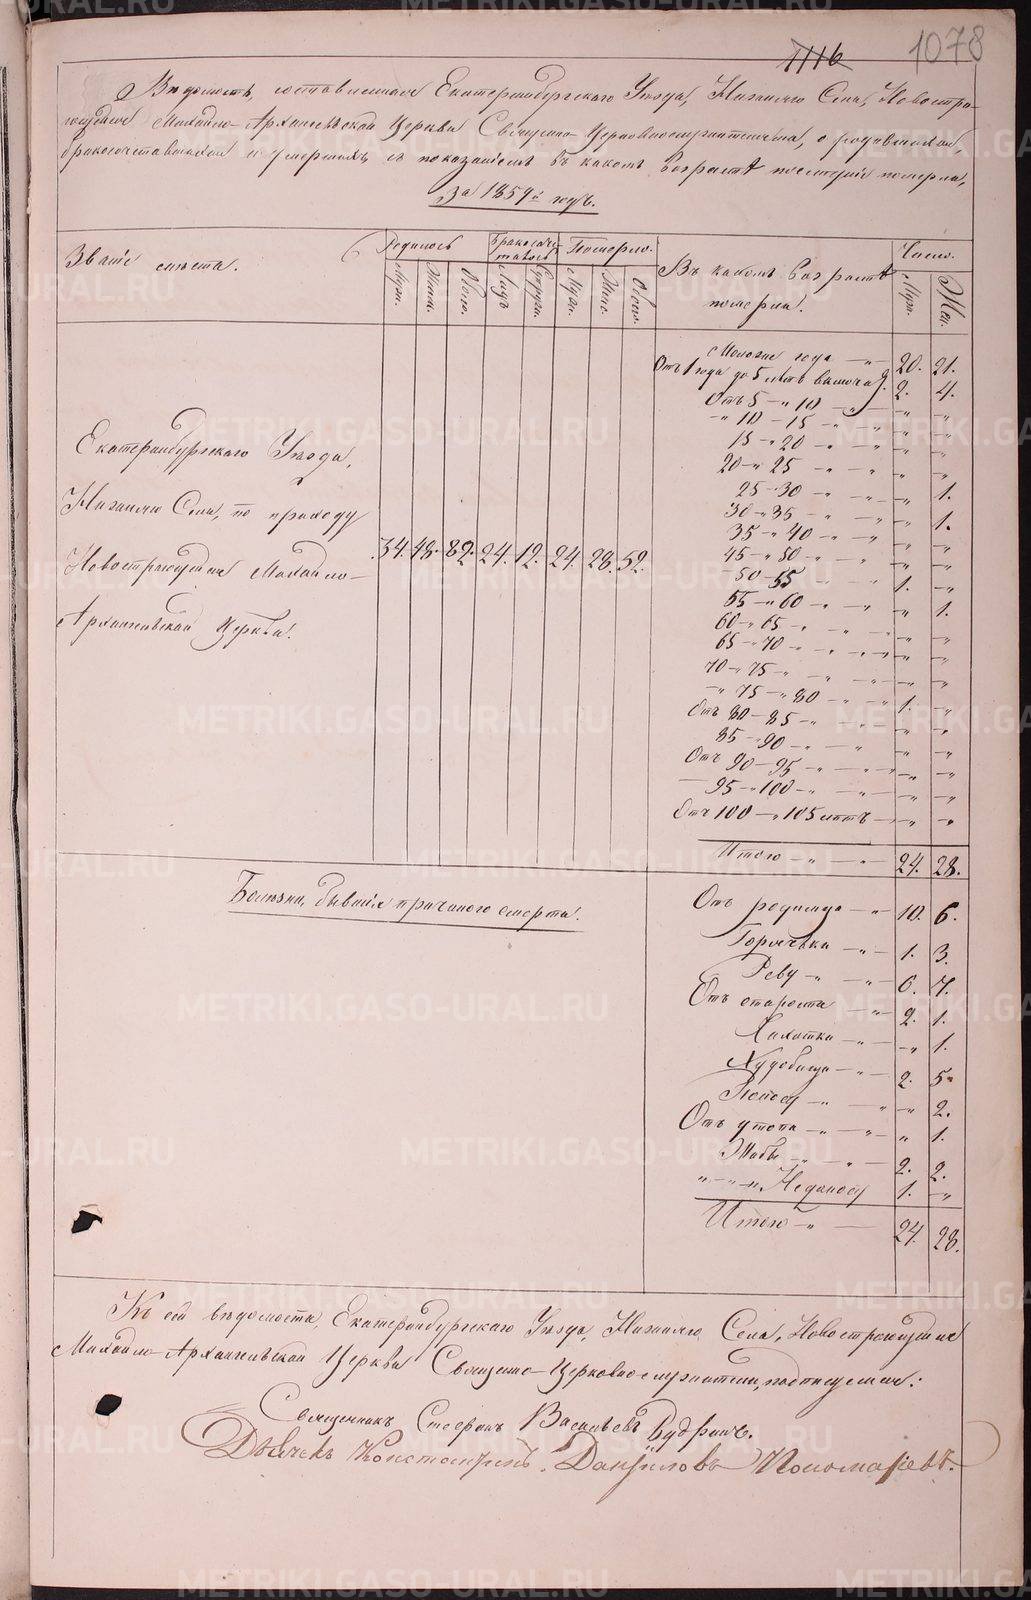 1116 1078
Вѣдомость, составленная Екатеринбургскаго Уѣзда, Нижняго Села, Новостро-
ющейся Михайло-Архангельской Церкви Священно-Церковнослужителями, о родившихся,
бракосочетавшихся и умершихъ, съ показаніемъ въ какомъ возрастѣ послѣдніе померли,
За 1859й годъ.
Званіе мѣста.
Родилось
Бракосоче-
талось
Померло.
Въ какомъ возрастѣ
померли.
Число.
Муж.
Жен.
Обоего.
Лицъ
Супруж.
Муж.
Жен.
Обоего.
Муж.
Жен.
Екатеринбургскаго Уѣзда,
Нижняго Села, по приходу
Новостроющейся Михайло-
Архангельской Церкви.
34. 48. 82. 24. 12. 24. 28. 52.
Моложе года — „ 20. 21.
Отъ 1 года до 5 лѣтъ включ. 2. 4.
Отъ 5 — „ 10 — „ — „ — „
— „ 10 — 15 — „ — „ — „ — „
15 — „ 20 — „ — „ — „ — „
20 — „ 25 — „ — „ — „ — „
25 — 30 — „ — „ — „ 1.
30 — „ 35 — „ — „ — „ 1.
35 — „ 40 — „ — „ — „ — „
45 — „ 50 — „ — „ — „ — „
50 — 55 — „ — „ 1. — „
55 — „ 60 — „ — „ — „ 1.
60 — „ 65 — „ — „ — „ — „
65 — „ 70 — „ — „ — „ — „
70 — „ 75 — „ — „ — „ — „
— „ 75 — „ 80 — „ — „ 1. — „
Отъ 80 — 85 — „ — „ — „ — „
85 — „ 90 — „ — „ — „ — „
Отъ 90 — 95 — „ — „ — „ — „
95 — „ 100 — „ — „ — „ — „
Отъ 100 — „ 105 лѣтъ — „ — „
Итого — „ — „ 24. 28.
Болѣзни, бывшія причиною смерти.
Отъ родимца — „ 10. 6.
Горячьки — „ 1. 3.
Реву — „ — „ 6. 7.
Отъ старости — „ 2. 1.
Чахотки — „ — „ 1.
Худобища — „ 2. 5.
Поносу — „ — „ 2.
Отъ утопа — „ — „ 1.
Жабы — „ — „ 2. 2.
„ — „ — „ Недоносу 1. — „
Итого — „ — 24. 28.
Къ сей вѣдомости, Екатеринбургскаго Уѣзда, Нижняго Села, Новостроющейся
Михайло-Архангельской Церкви Священно-Церковнослужители, подписуемся:
Священникъ Стефанъ Васильевъ Будринъ.
Дьячекъ Константинъ Даниловъ Пономаревъ.
METRIKI.GASO-URAL.RU